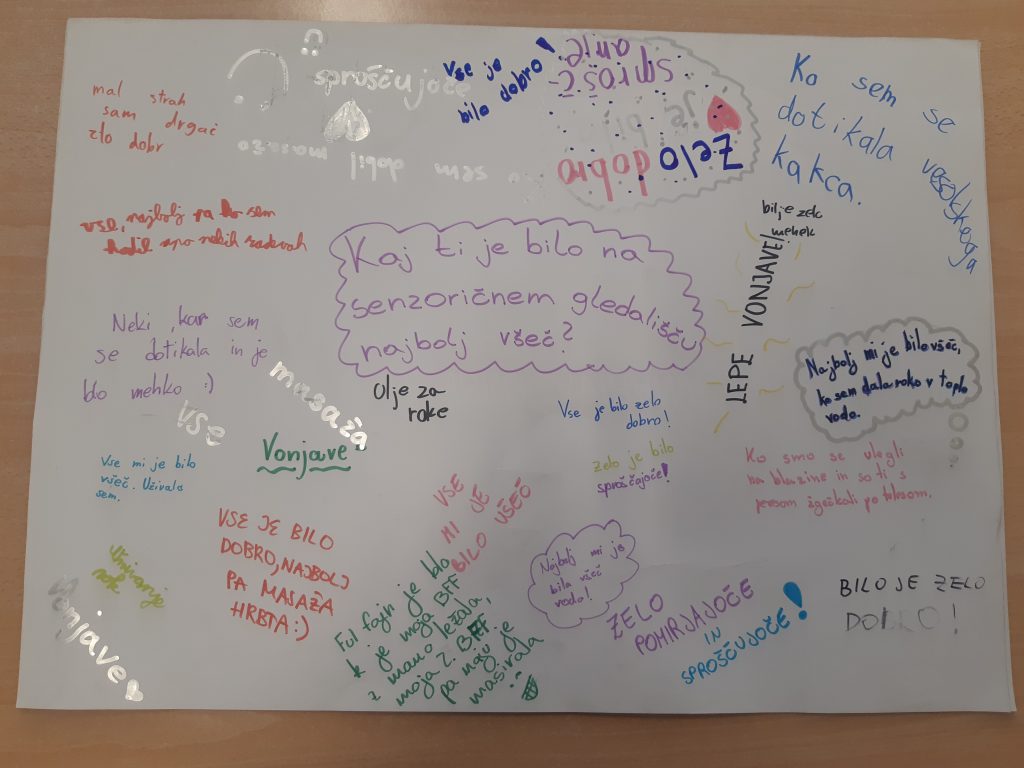 Kaj ti je bilo na
senzoričnem gledališču
najbolj všeč?
mal strah
sam drgač
zlo dobr
sproščujoče
ko sem dobil masažo
Vse je
bilo dobro!
Zelo dobro
je bilo
sprošč-
anje
Ko sem se
dotikala
kakca.
vse, najbolj pa ko sem
hodil po nekih
bil je zelo
mehek
LEPE VONJAVE!
Neki, kar sem
se dotikala in je
blo mehko :)
masaža
VSE
Olje za
roke
Najbolj mi je bilo všeč,
ko sem dala roko v toplo
vodo.
Vse je bilo zelo
dobro!
Vonjave
Vse mi je bilo
všeč. Uživala
sem.
zelo je bilo
sproščajoče!
Ko smo se ulegli
na blazine in so ti s
peresom žgečkali po
VSE
MI JE
BILO VŠEČ
VSE JE BILO
DOBRO, NAJBOLJ
PA MASAŽA
HRBTA :)
Najbolj mi je
bila všeč
voda!
Ful fajn je blo
k je moja BFF
z mano ležala,
moja 2. BFF
pa naju je
masirala
:)
Vonjave
ZELO
POMIRJAJOČE
IN
SPROŠČUJOČE!
BILO JE ZELO
DOBRO!